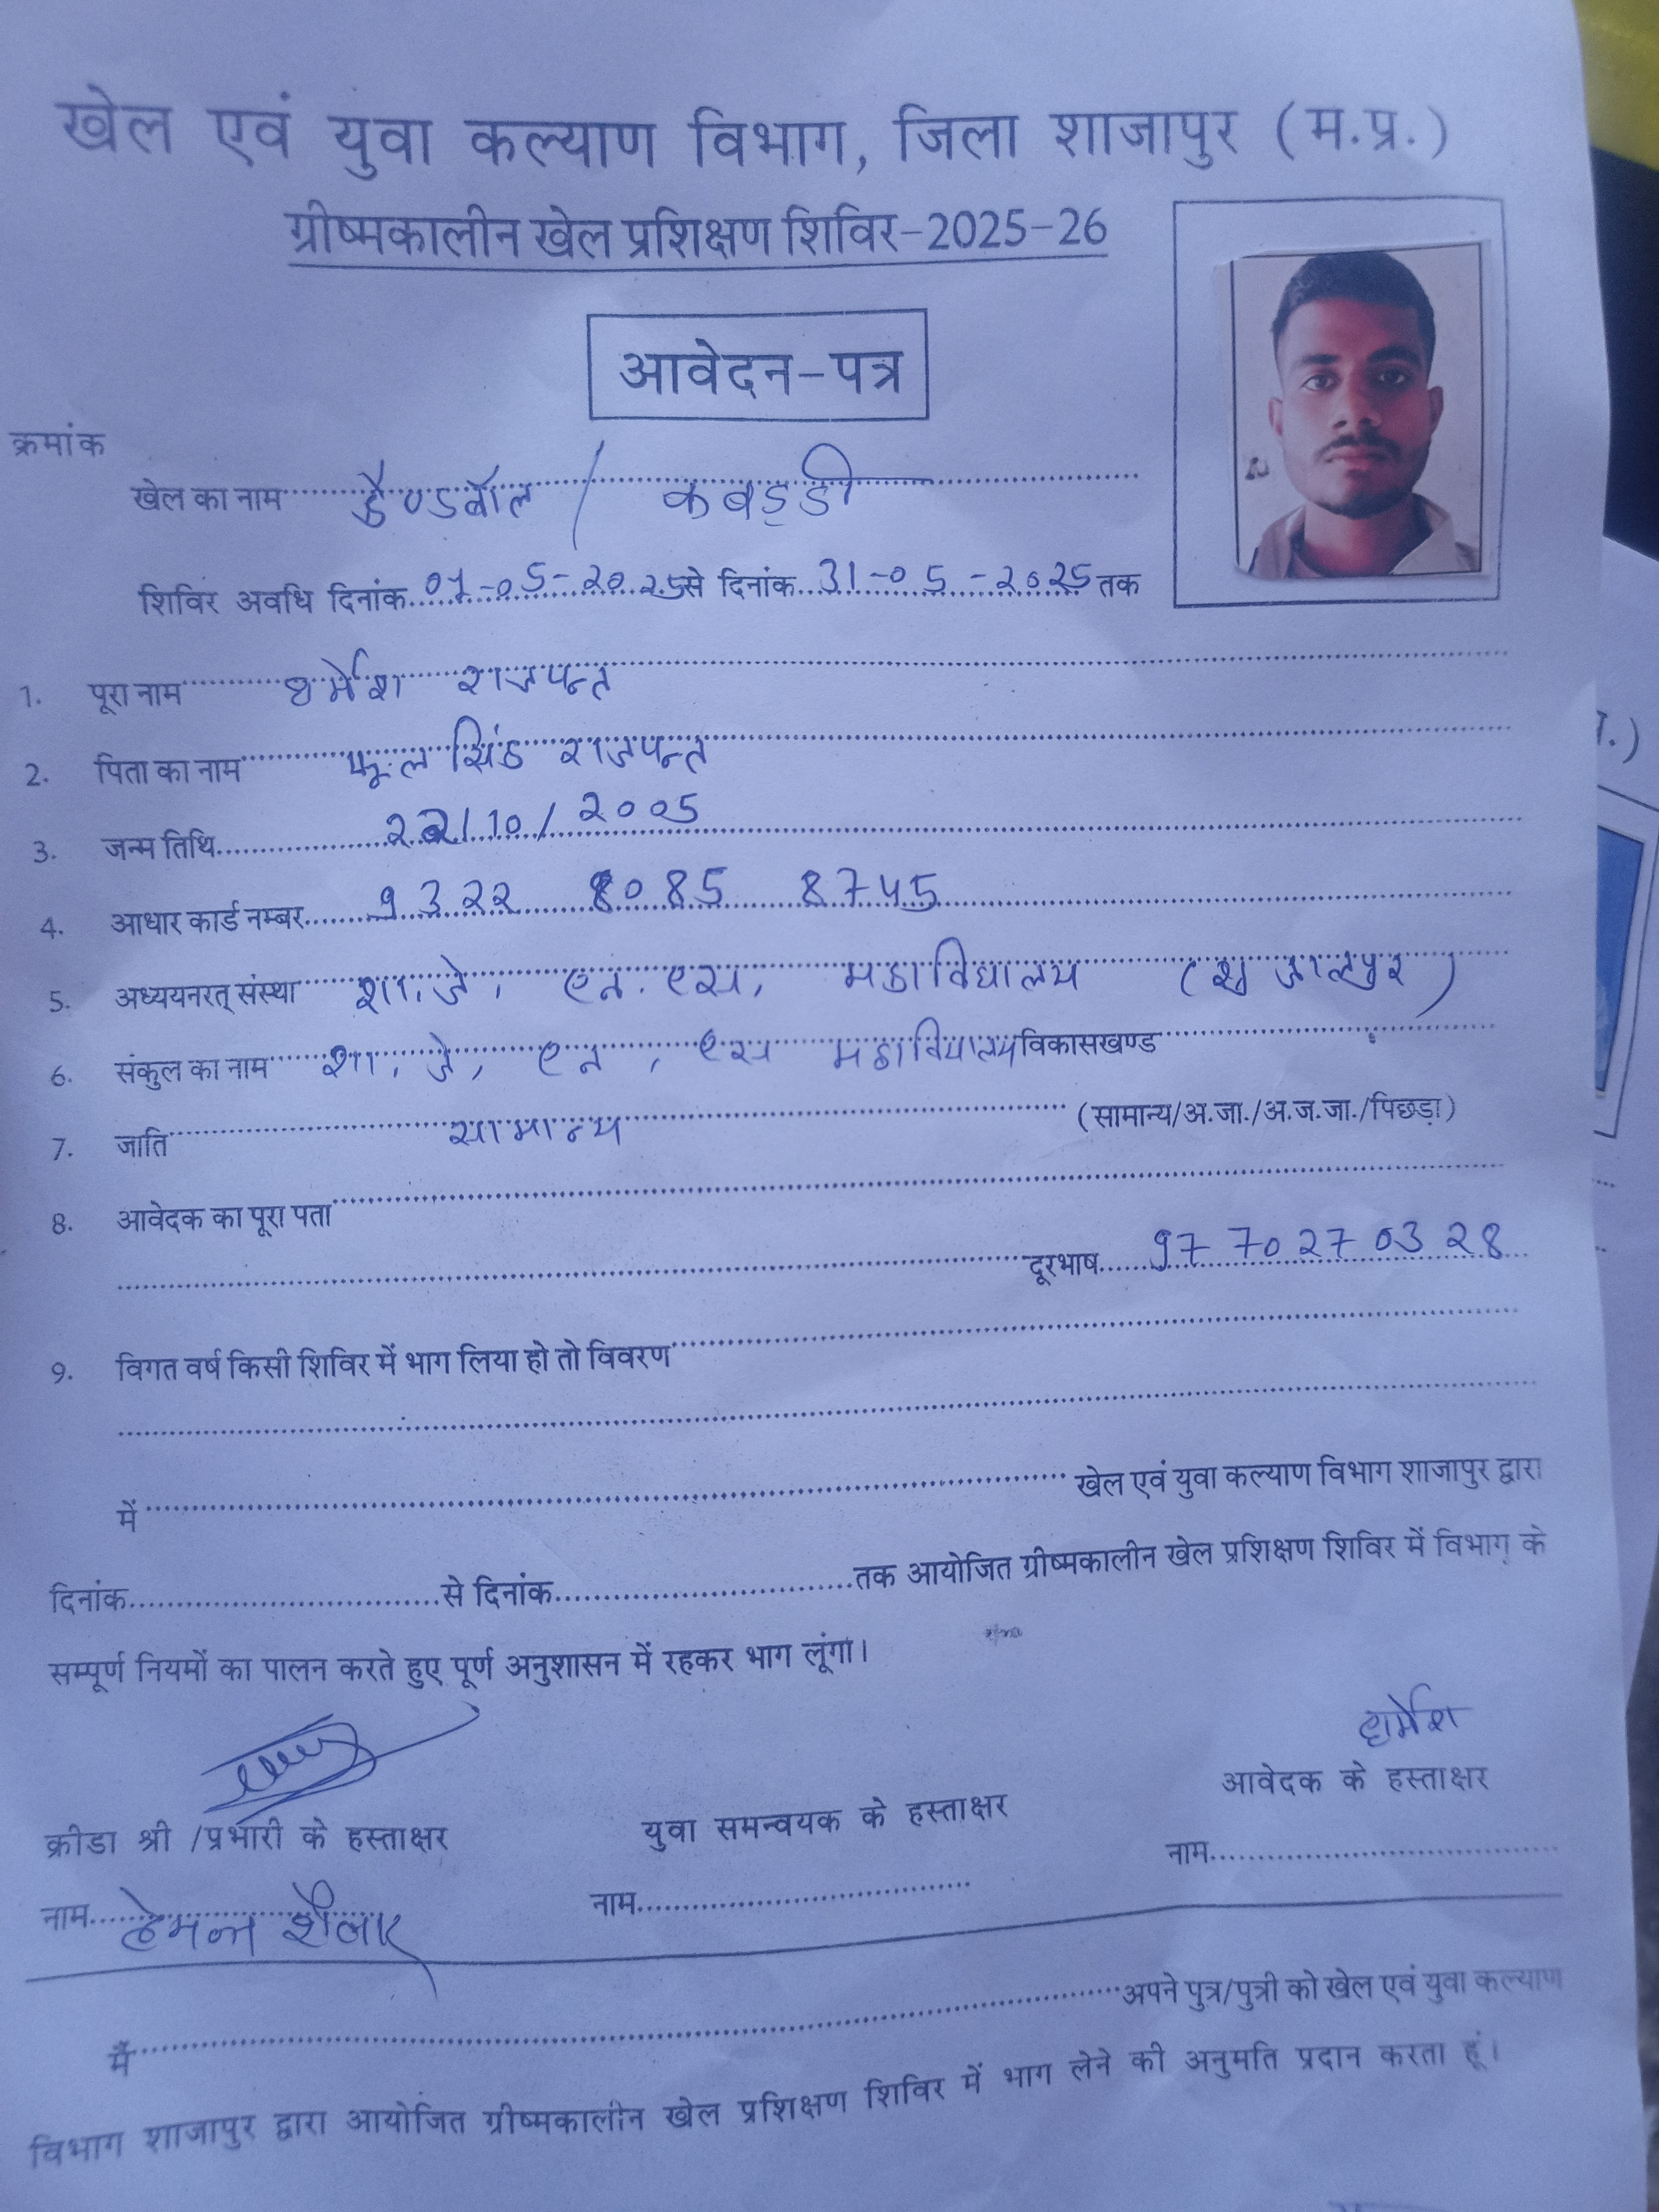 खेल एवं युवा कल्याण विभाग, जिला शाजापुर (म.प्र.)
ग्रीष्मकालीन खेल प्रशिक्षण शिविर-2025-26
आवेदन-पत्र
क्रमांक
खेल का नाम हैण्डबॉल / कबड्डी
शिविर अवधि दिनांक 01-05-2025 से दिनांक 31-05-2025 तक
1. पूरा नाम धर्मेश राजपन्त
2. पिता का नाम फूल सिंह राजपन्त
3. जन्म तिथि 22/10/2005
4. आधार कार्ड नम्बर 9322 8085 8745
5. अध्ययनरत् संस्था शा. जे. एन. एस. महाविद्यालय (शुजालपुर)
6. संकुल का नाम शा. जे, एन, एस महाविद्यालय विकासखण्ड
7. जाति सामान्य (सामान्य/अ.जा./अ.ज.जा./पिछड़ा)
8. आवेदक का पूरा पता
दूरभाष 97 70 27 03 28
9. विगत वर्ष किसी शिविर में भाग लिया हो तो विवरण
में खेल एवं युवा कल्याण विभाग शाजापुर द्वारा
दिनांक से दिनांक तक आयोजित ग्रीष्मकालीन खेल प्रशिक्षण शिविर में विभाग के
सम्पूर्ण नियमों का पालन करते हुए पूर्ण अनुशासन में रहकर भाग लूंगा।
धर्मेश
आवेदक के हस्ताक्षर
क्रीडा श्री /प्रभारी के हस्ताक्षर युवा समन्वयक के हस्ताक्षर
नाम हेमन्त नाम नाम
मैं अपने पुत्र/पुत्री को खेल एवं युवा कल्याण
विभाग शाजापुर द्वारा आयोजित ग्रीष्मकालीन खेल प्रशिक्षण शिविर में भाग लेने की अनुमति प्रदान करता हूं।